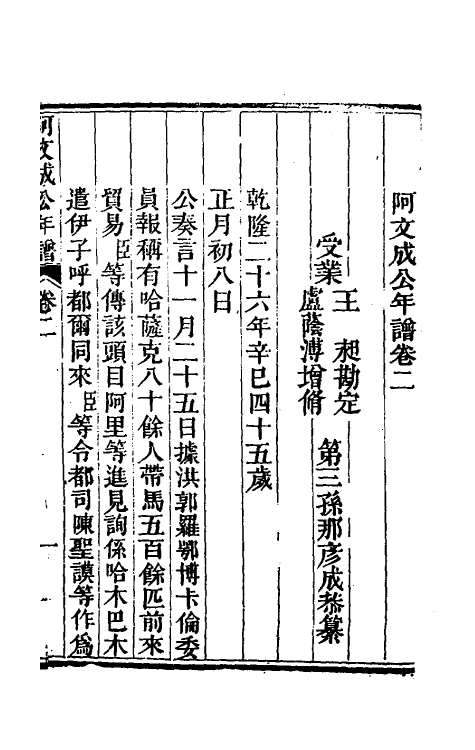 阿文成公年譜卷二
第三孫那彥成恭纂
受業
王昶勘定
盧蔭溥增脩
乾隆二十六年辛巳四十五歲
正月初八日
公奏言十一月二十五日據洪郭羅鄂博卡倫委
員報稱有哈薩克八十餘人帶馬五百餘匹前來
貿易臣等傳該頭目阿里等進見詢係哈木巴木
遣伊子呼都爾同來臣等令都司陳聖謨等作爲
阿文成公年譜
卷二
一